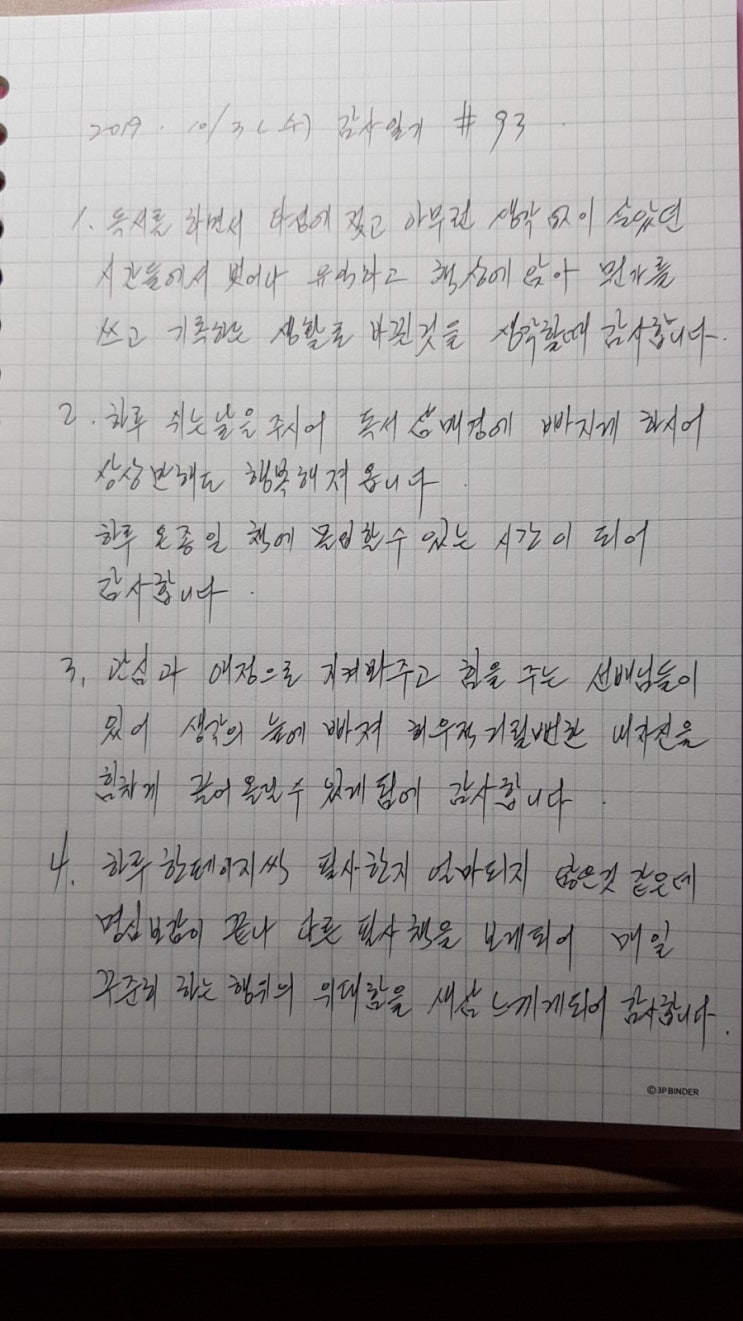 2019. 10/3 (수) 감사일기 #93.
1. 독서를 하면서 타성에 젖고 아무런 생각 없이 살았던
시간들에서 벗어나 유익하고 책상에 앉아 뭔가를
쓰고 기록하는 생활로 바뀐것을 생각할때 감사합니다.
2. 하루 쉬는날을 주시어 독서 삼매경에 빠지게 하시어
상상만해도 행복해져 옵니다.
하루 온종일 책에 몰입할수 있는 시간이 되어
감사합니다.
3. 관심과 애정으로 지켜봐주고 힘을 주는 선배님들이
있어 생각의 늪에 빠져 허우적거릴뻔한 내자신을
힘차게 끌어올릴수 있게됨에 감사합니다.
4. 하루 한페이지씩 필사한지 얼마되지 않은것 같은데
명심보감이 끝나 다른 필사책을 보게되어 매일
꾸준히 하는 행위의 위대함을 새삼 느끼게되어 감사합니다.
©3P BINDER